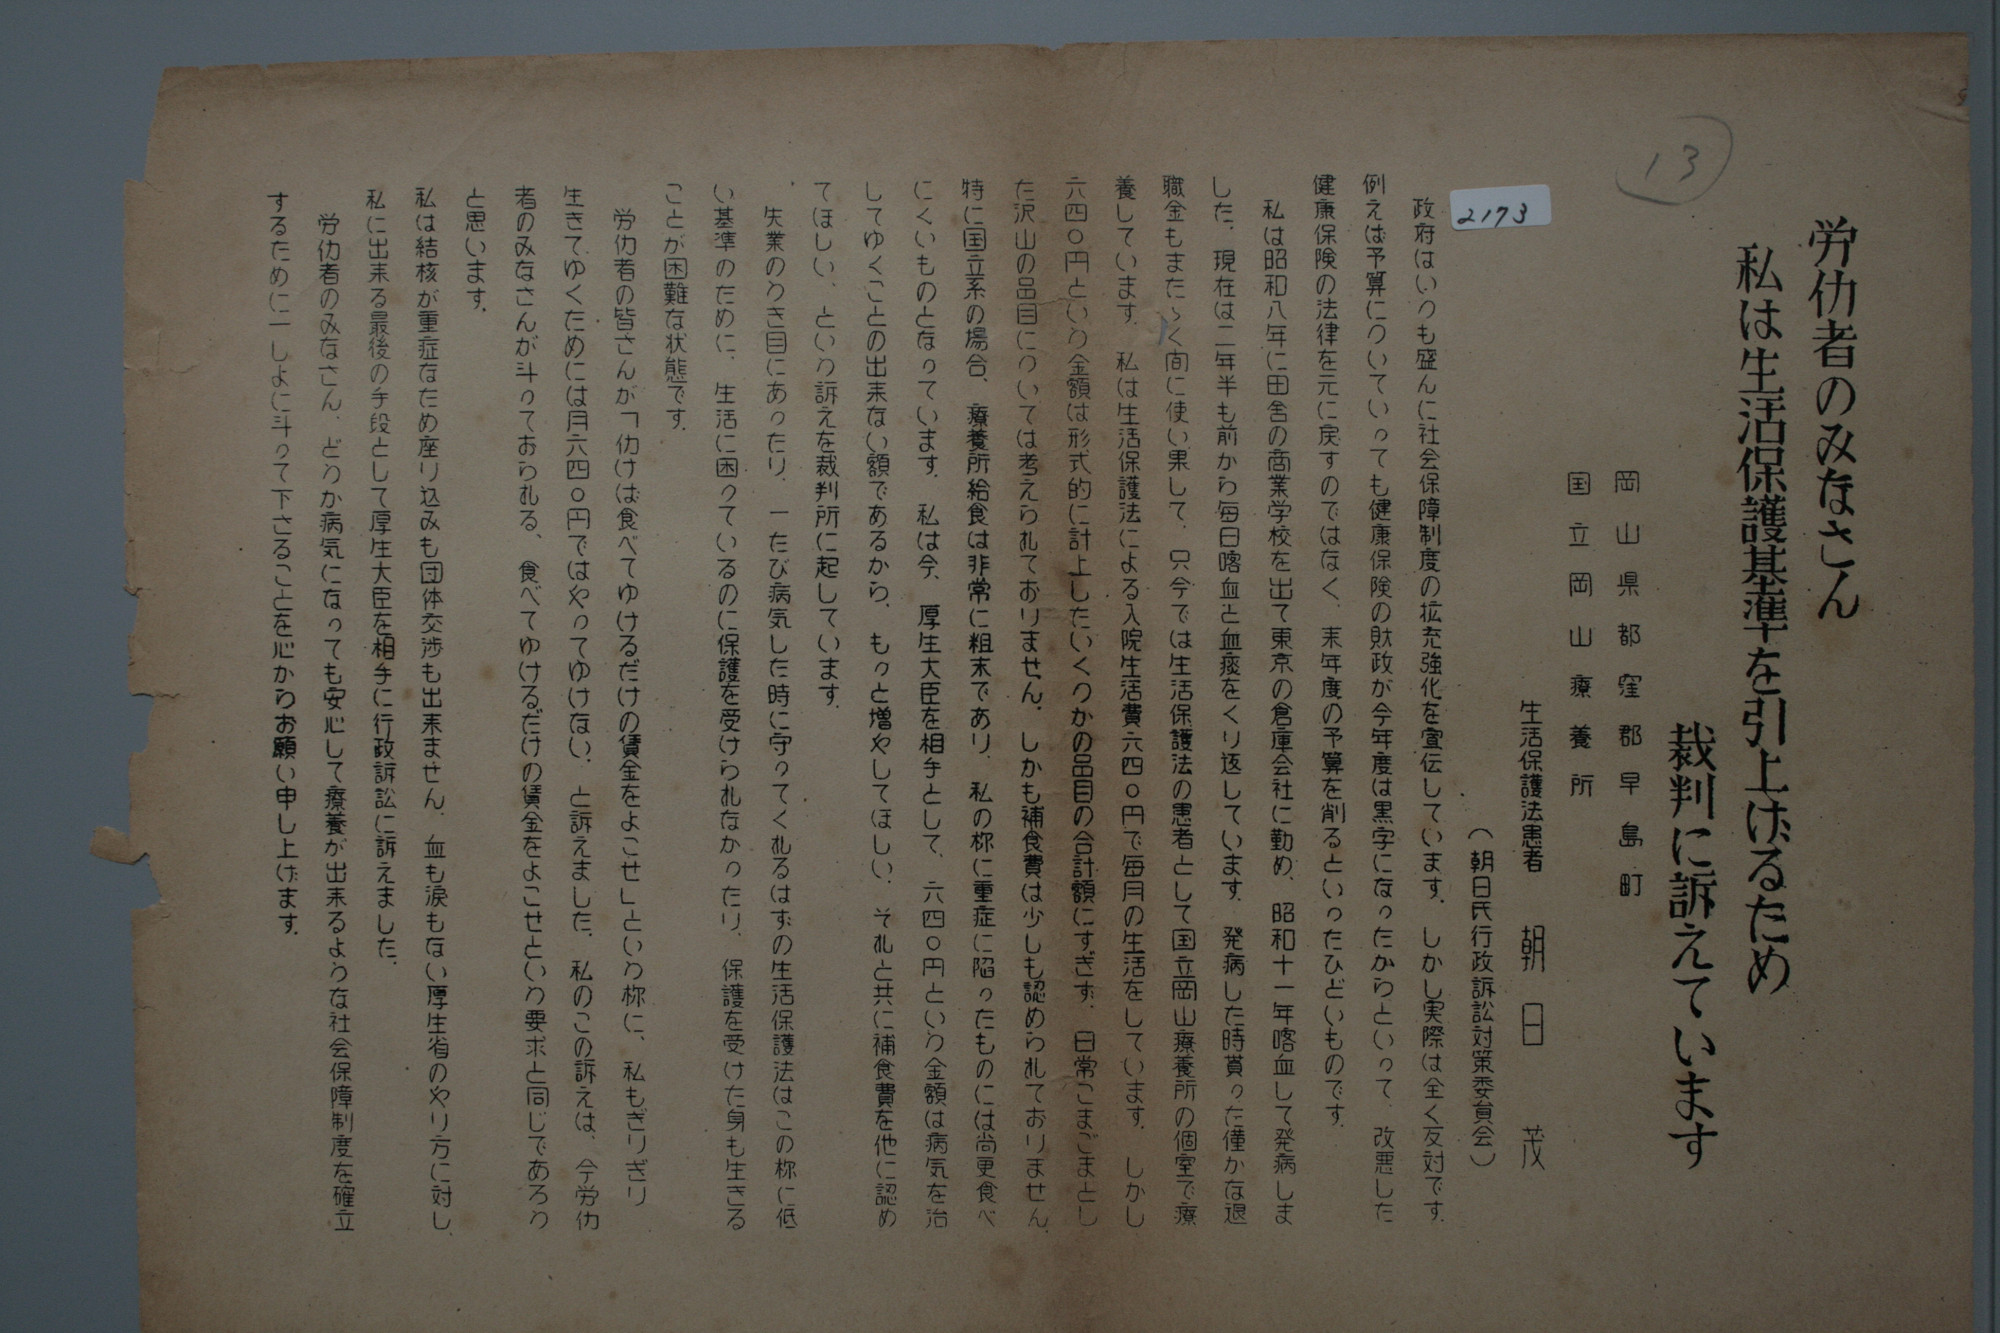 13
2173
労仂者のみなさん
私は生活保護基準を引上げるため
裁判に訴えています
岡山県都窪郡早島町
国立岡山療養所
生活保護法患者 朝日 茂
(朝日氏行政訴訟対策委員会)
政府はいつも盛んに社会保障制度の拡充強化を宣伝しています。しかし実際は全く反対です。
例えば予算についていっても健康保険の財政が今年度は黒字になったからといって、改悪した
健康保険の法律を元に戻すのではなく、来年度の予算を削るといったひどいものです。
私は昭和八年に田舎の商業学校を出て東京の倉庫会社に勤め、昭和十一年喀血して発病しま
した。現在は二年半も前から毎日喀血と血痰をくり返しています。発病した時貰った僅かな退
職金もまたゝく間に使い果して、只今では生活保護法の患者として国立岡山療養所の個室で療
養しています。私は生活保護法による入院生活費六四〇円で毎月の生活をしています。しかし
六四〇円という金額は形式的に計上したいくつかの品目の合計額にすぎず、日常こまごまとし
た沢山の品目については考えられておりません。しかも補食費は少しも認められておりません。
特に国立系の場合、療養所給食は非常に粗末であり、私の様に重症に陥ったものには尚更食べ
にくいものとなっています。私は今、厚生大臣を相手として、六四〇円という金額は病気を治
してゆくことの出来ない額であるから、もっと増やしてほしい、それと共に補食費を他に認め
てほしい、という訴えを裁判所に起しています。
失業のうき目にあったり、一たび病気した時に守ってくれるはずの生活保護法はこの様に低
い基準のために、生活に困っているのに保護を受けられなかったり、保護を受けた身も生きる
ことが困難な状態です。
労仂者の皆さんが「仂けば食べてゆけるだけの賃金をよこせ」という様に、私もぎりぎり
生きてゆくためには月六四〇円ではやってゆけない、と訴えました。私のこの訴えは、今労仂
者のみなさんが斗っておられる、食べてゆけるだけの賃金をよこせという要求と同じであろう
と思います。
私は結核が重症なため座り込みも団体交渉も出来ません。血も涙もない厚生省のやり方に対し、
私に出来る最後の手段として厚生大臣を相手に行政訴訟に訴えました。
労仂者のみなさん、どうか病気になっても安心して療養が出来るような社会保障制度を確立
するために一しよに斗って下さることを心からお願い申し上げます。